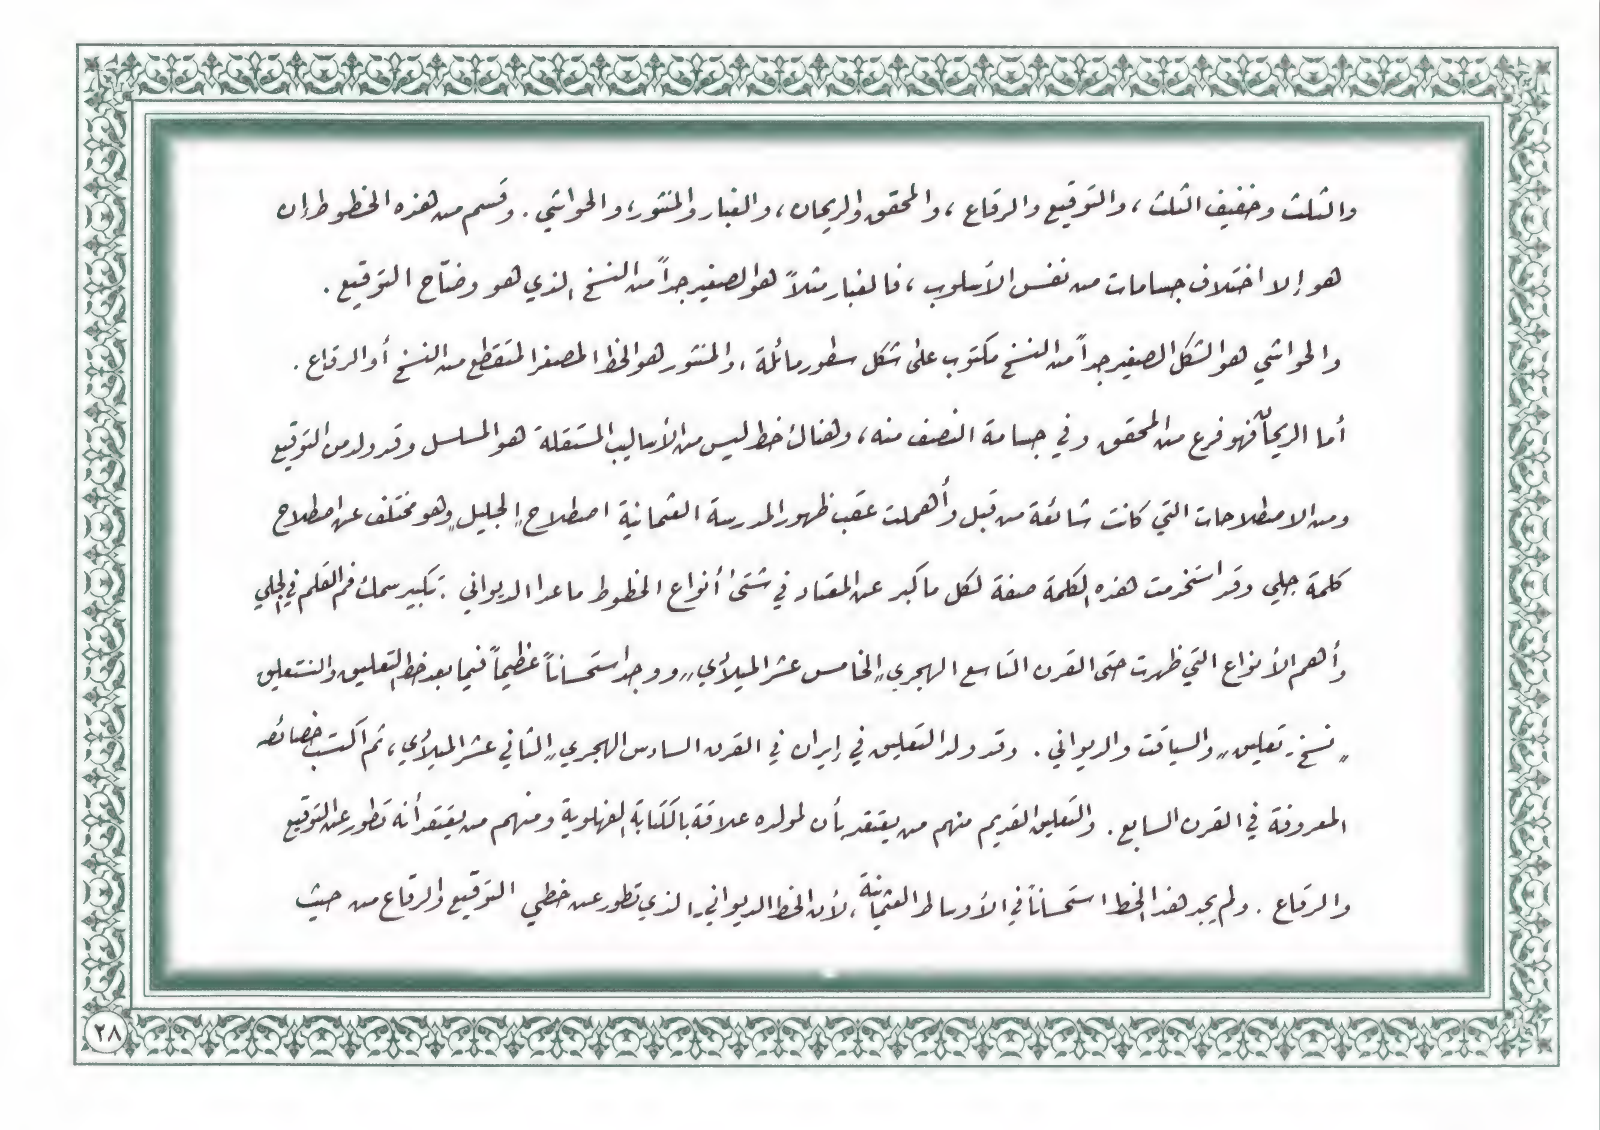 والثلث وخفيف الثلث ، والتوقيع والرقاع ، والمحقق والريحان ، والغبار والمنثور ، والحواشي . وقسم من هذه الخطوط إن
هو إلا اختلاف جسامات من نفس الأسلوب ، فالغبار مثلاً هو الصغير جداً من النسخ الذي هو وضّاح التوقيع .
والحواشي هو الشكل الصغير جداً من النسخ مكتوب على شكل سطور مائلة ، والمنثور هو الخط المصغر المتقطع من النسخ أو الرقاع .
أما الريحان فهو فرع من المحقق وفي جسامة النصف منه ، وهناك خط ليس من الأساليب المستقلة هو المسلسل وقد ولد من التوقيع
ومن الاصطلاحات التي كانت شائعة من قبل وأهملت عقب ظهور المدرسة العثمانية اصطلاح „الجليل„ وهو مختلف عن اصطلاح
كلمة جلي وقد استخدمت هذه الكلمة صفة لكل ما كبر عن المعتاد في شتى أنواع الخطوط ما عدا الديواني : تكبير سمك فم القلم في الجلي
وأهم الأنواع التي ظهرت حتى القرن التاسع الهجري „الخامس عشر الميلادي„ ووجد استحساناً عظيماً فيما بعد خط التعليق والنستعليق
„ نسخ - تعليق „ والسياقت والديواني . وقد ولد التعليق في إيران في القرن السادس الهجري „الثاني عشر الميلادي ، ثم اكتسب خصائصه
المعروفة في القرن السابع . والتعليق القديم منهم من يعتقد بأن لمولده علاقة بالكتابة الفهلوية ومنهم من يعتقد أنه تطور عن التوقيع
والرقاع . ولم يجد هذا الخط استحساناً في الأوساط العثمانية ، لأن الخط الديواني - الذي تطور عن خطي التوقيع والرقاع من حيث
٢٨